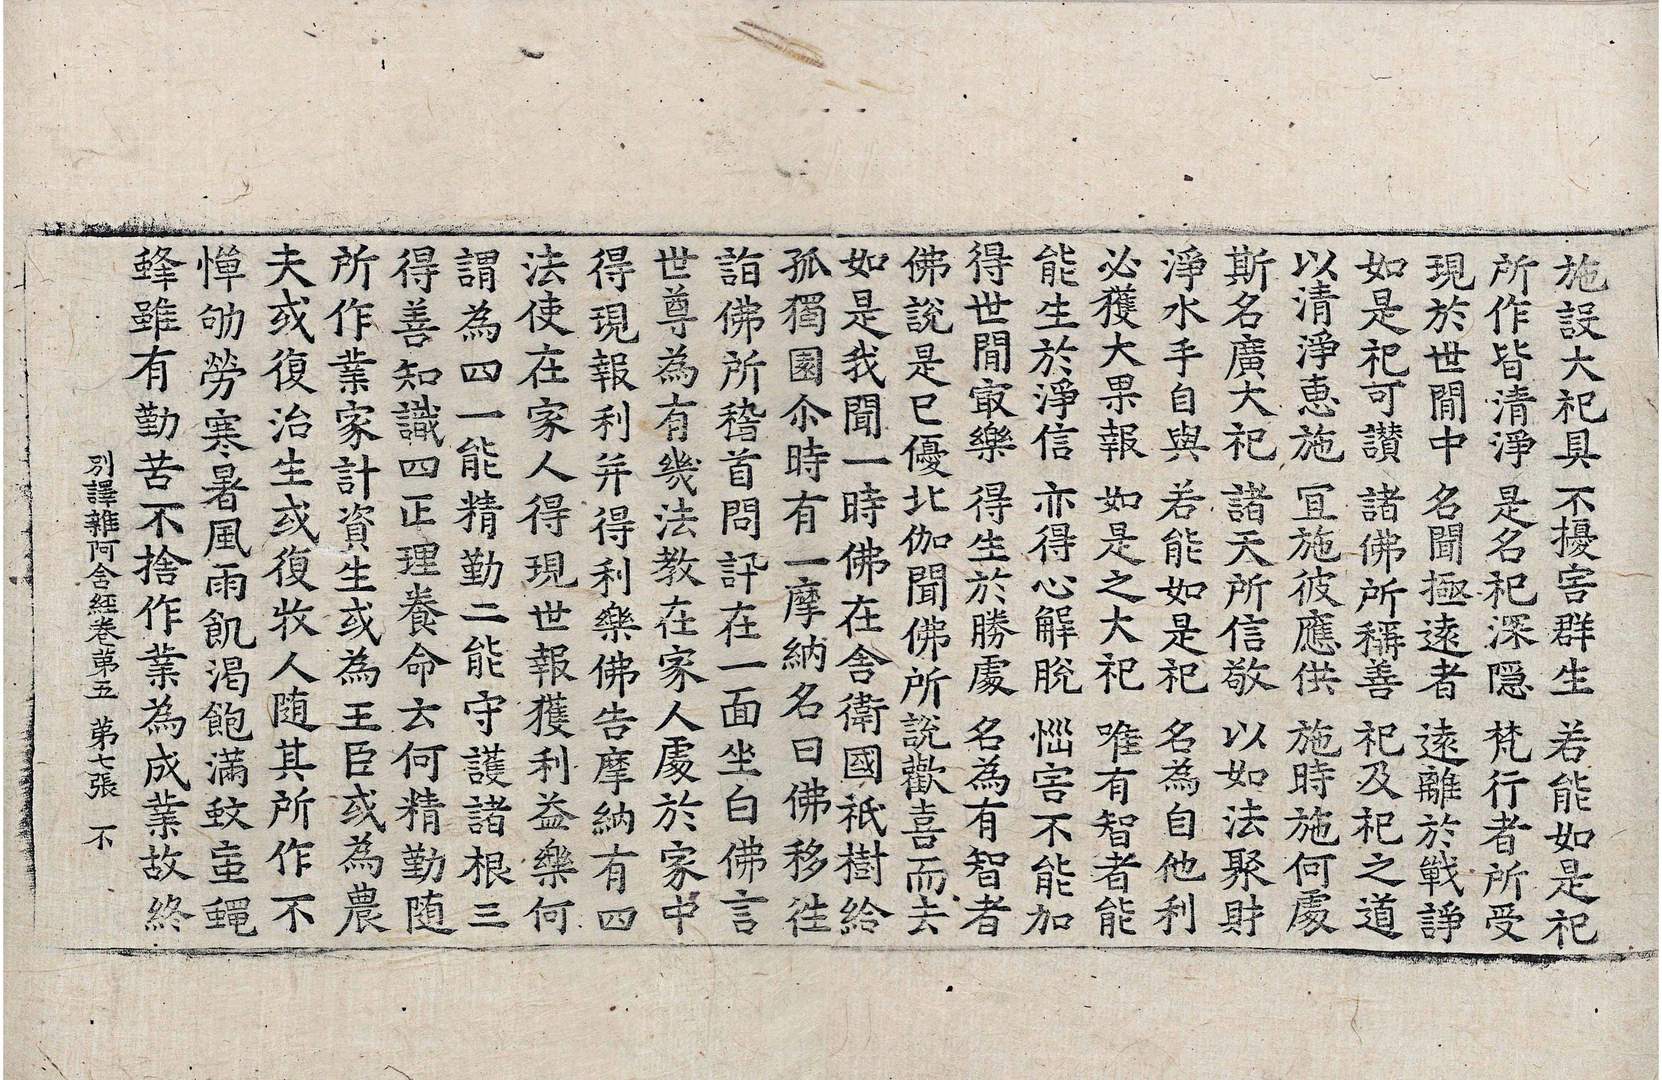 施設大祀具 不擾害群生 若能如是祀
所作皆清淨 是名祀深隱 梵行者所受
現於世間中 名聞極遠者 遠離於戰諍
如是祀可讃 諸佛所稱善 祀及祀之道
以清淨惠施 冝施彼應供 施時施何處
斯名廣大祀 諸天所信敬 以如法聚財
淨水手自與 若能如是祀 名為自他利
必獲大果報 如是之大祀 唯有智者能
能生於淨信 亦得心解脫 惱害不能加
得世間㝡樂 得生於勝處 名為有智者
佛說是已優比伽聞佛所說歡喜而去
如是我聞一時佛在舍衛國祇樹給
孤獨園尒時有一摩納名曰佛移徃
詣佛所稽首問訊在一面坐白佛言
世尊為有幾法教在家人處於家中
得現報利并得利樂佛告摩納有四
法使在家人得現世報獲利益樂何
謂為四一能精勤二能守護諸根三
得善知識四正理養命云何精勤随
所作業家計資生或為王臣或為農
夫或復治生或復牧人随其所作不
憚劬勞寒暑風雨飢渴飽滿蚊䖟蠅
蜂雖有勤苦不捨作業為成業故終
別譯雜阿含經卷第五 第七張 不